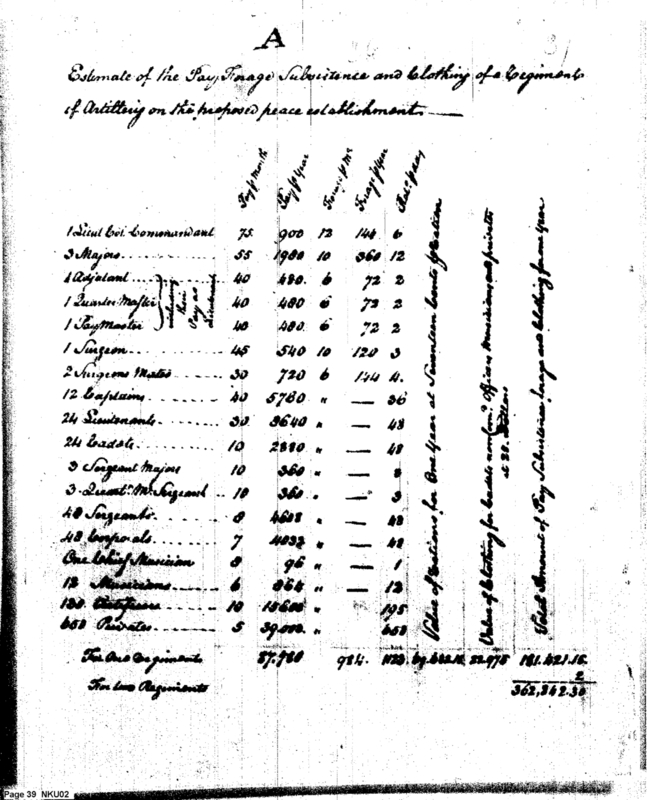 A
Estimate of the Pay, Forage Subsistence and Clothing of a Regiment
of Artillery on the proposed peace establishment
Pay p Month Pay p Year Forage p Mo Forage p Year Rats p day Value of Rations for One Year at Seventeen Cents p Ration Value of Clothing for Cadets non com.d Officers Musicians and privates at 28. Dollars Total Amount of Pay Subsistence forage and Clothing for one Year
1 Lieut Col Commandant 75 900 12 144 6
3 Majors 55 1980 10 360 12
1 Adjutant 40 480 6 72 2
1 Quarter Master 40 480 6 72 2
1 PayMaster 40 480 6 72 2
their Pay as Lieutenants
1 Surgeon 45 540 10 120 3
2 Surgeons Mates 30 720 6 144 4.
12 Captains 40 5760 " — 36
24 Lieutenants 30 8640 " — 48
24 Cadets 10 2880 " — 48
3 Sergeant Majors 10 360 " —
3. Quart.r M.r Sergeants 10 360 " —
48 Sergeants 8 4608 " — 48
48 Corporals 7 4032 " — 48
One Chief Musician 8 96 " — 1
12 Musicians 6 864 " — 12
130 Artificers 10 15600 " 195
650 Privates 5 39,000 " 650
For One Regiments 87,780 984. 22.975 181.421.15
2
For two Regiments 362,842.30
Page 39 NKU02